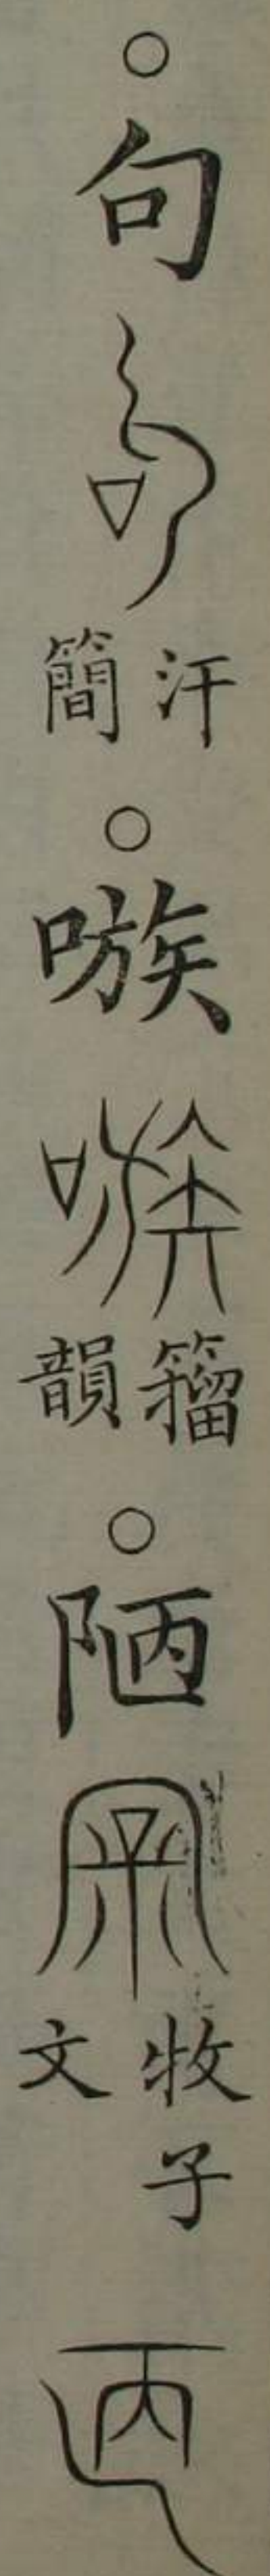 ○句汗簡○嗾籀韻○陋牧子文